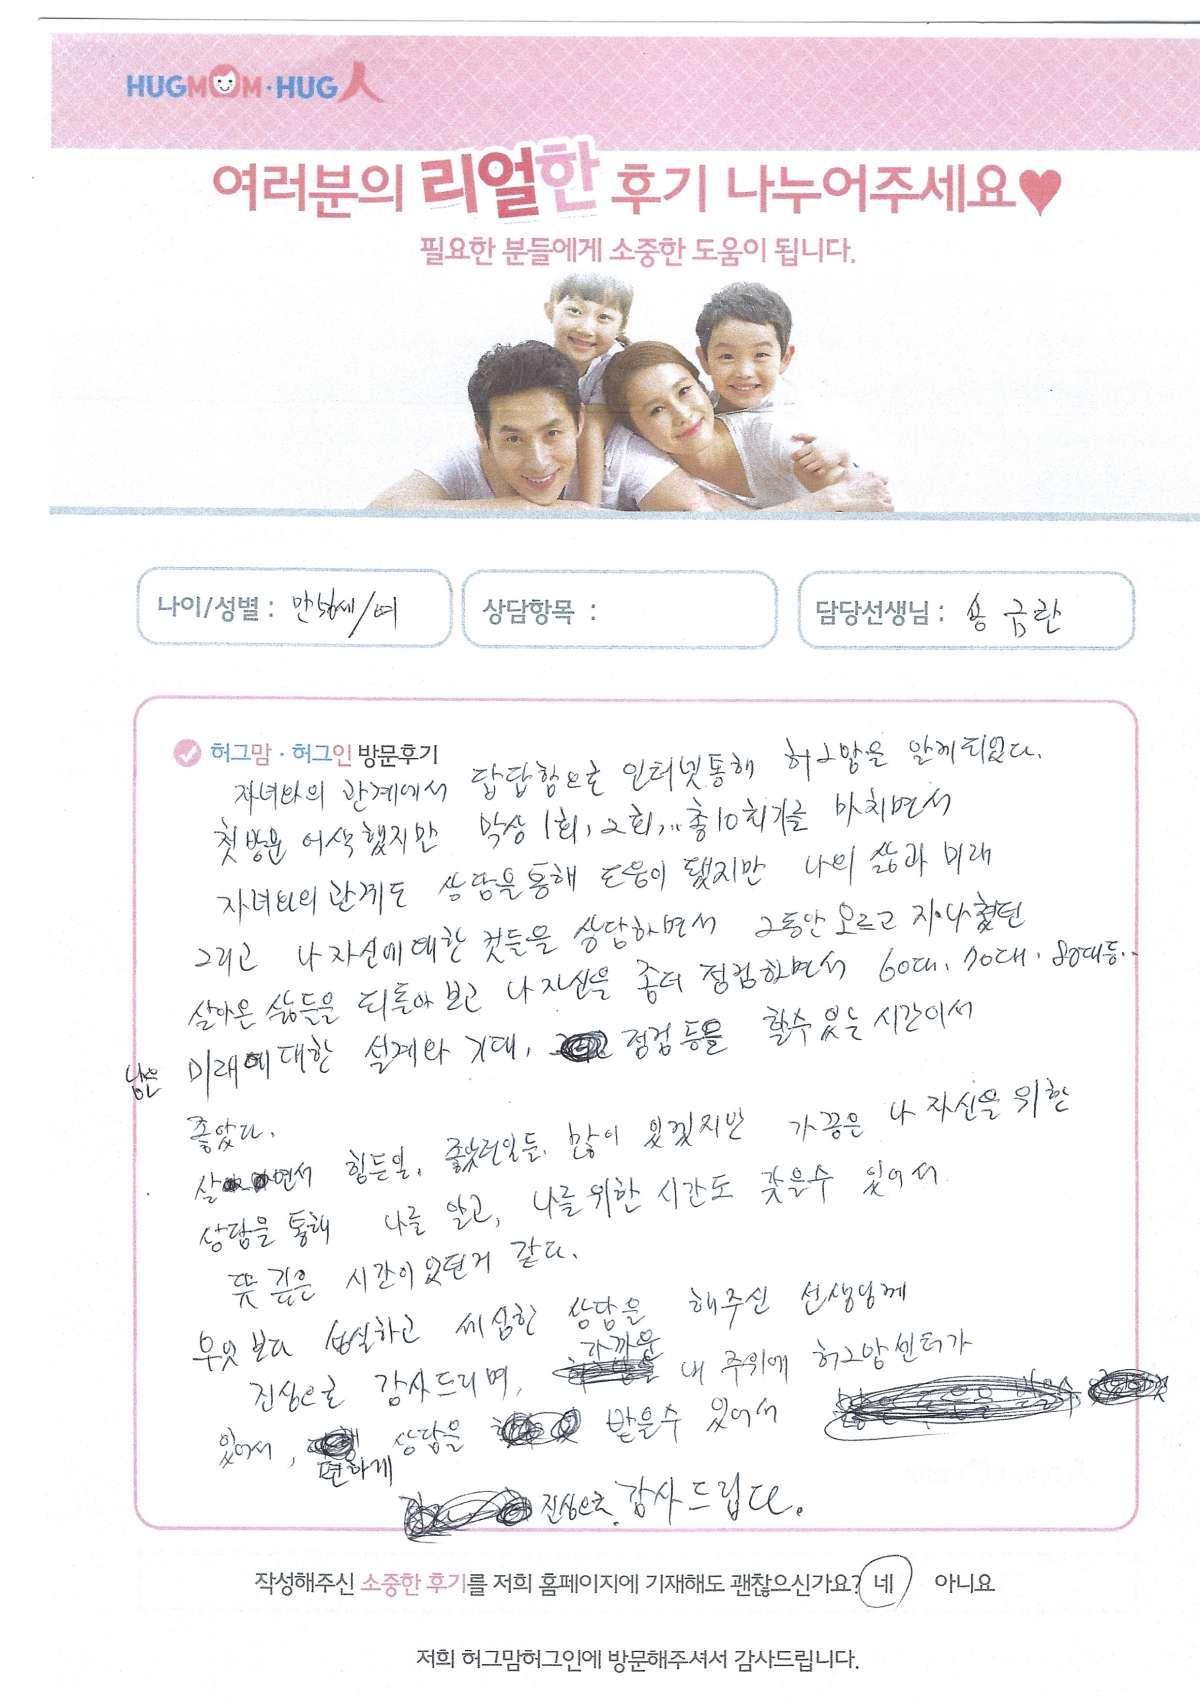 HUGMOM·HUG人
여러분의 리얼한 후기 나누어주세요♥
필요한 분들에게 소중한 도움이 됩니다.
나이/성별 : 만 세/여
상담항목 :
담당선생님 : 송 금란
허그맘 · 허그인 방문후기
자녀와의 관계에서 답답함으로 인터넷통해 허그맘을 알게되었다.
첫방문 어색했지만 막상 1회, 2회,.. 총10회기를 마치면서
자녀와의 관계도 상담을통해 도움이 됐지만 나의 삶과 미래
그리고 나 자신에대한 것들을 상담하면서 그동안 모르고 지나쳤던
살아온 삶들을 되돌아보고 나자신을 좀더 점검하면서 60대, 70대, 80대등..
남은 미래에대한 설계와 기대, 점검등을 할수있는 시간이서
좋았다.
살면서 힘든일, 좋았던일들, 많이 있겠지만 가끔은 나 자신을위한
상담을 통해 나를 알고, 나를위한 시간도 갖을수 있어서
뜻 깊은 시간이었던거 같다.
무엇보다 성실하고 세심한 상담을 해주신 선생님께
진심으로 감사드리며, 가까운 내 주위에 허그맘센터가
있어서, 편하게 상담을 받을수 있어서
진심으로 감사드립니다.
작성해주신 소중한 후기를 저희 홈페이지에 기재해도 괜찮으신가요? 네 아니요
저희 허그맘허그인에 방문해주셔서 감사드립니다.